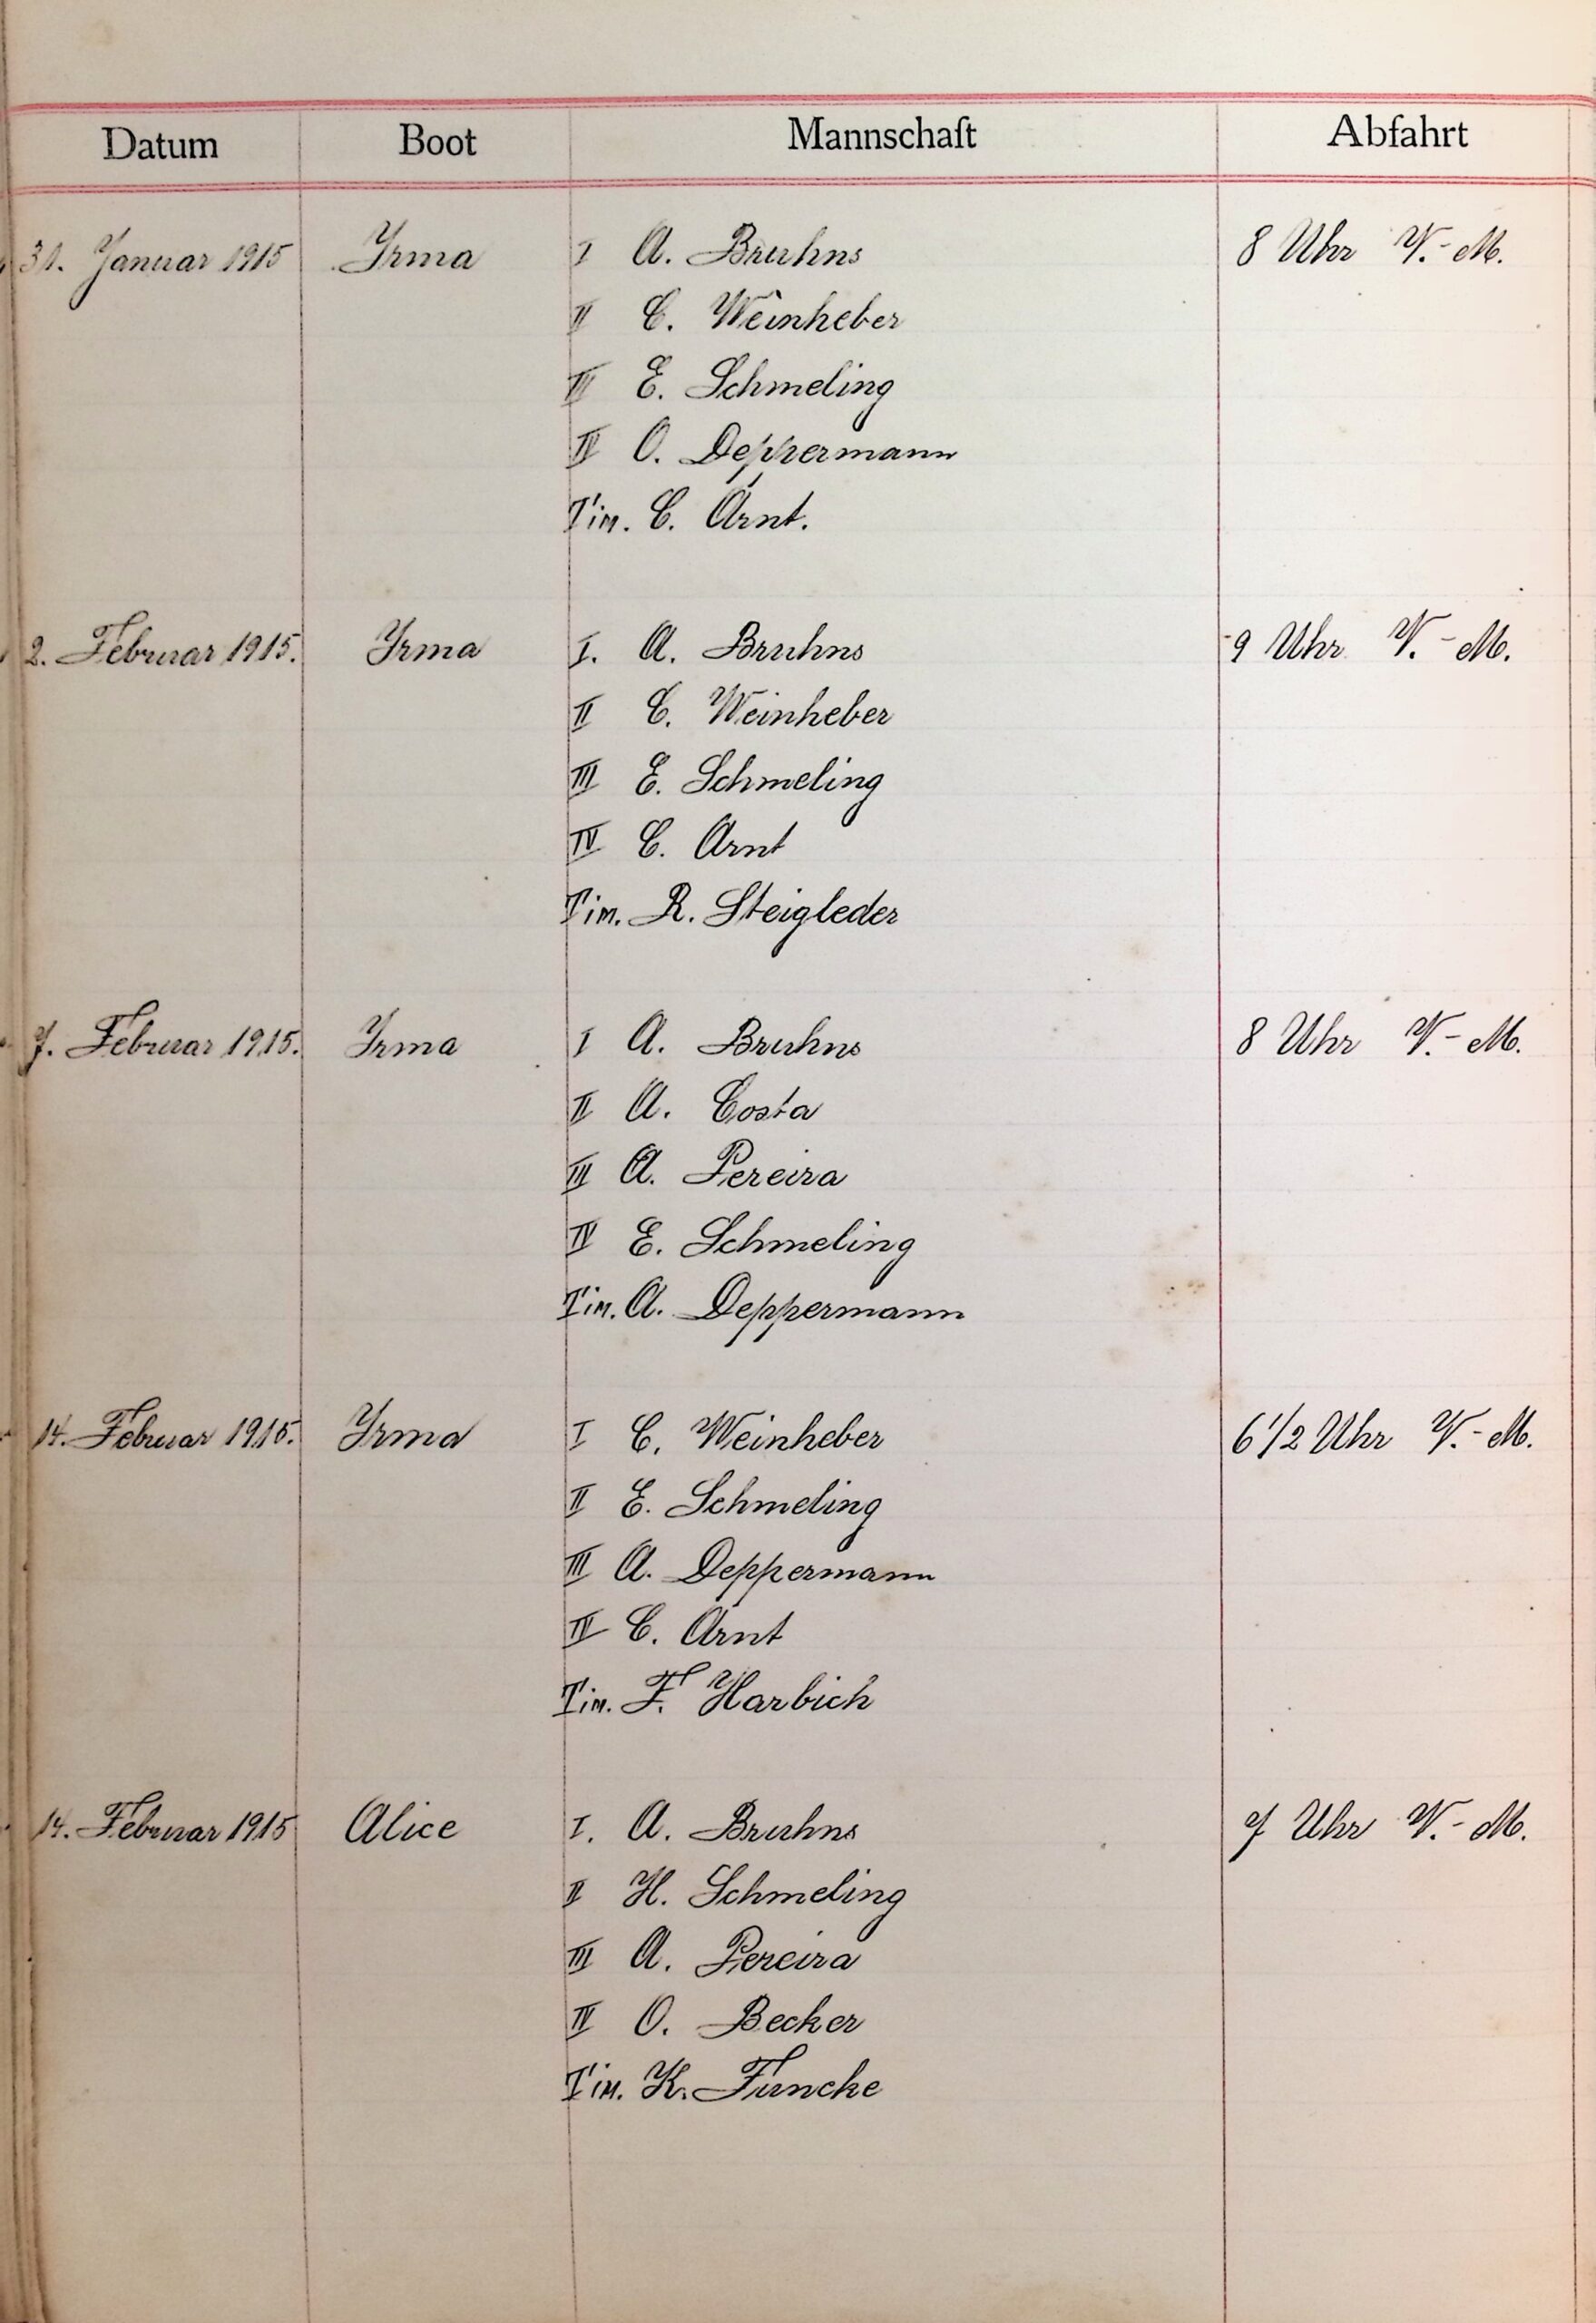 Datum Boot Mannschaft Abfahrt
31. Januar 1915 Yrma I A. Bruhns 8 Uhr V.-M.
II C. Weinheber
III E. Schmeling
IV O. Deppermann
Tim. C. Arnt.
2. Februar 1915. Yrma I. A. Bruhns 9 Uhr V.-M.
II C. Weinheber
III E. Schmeling
IV C. Arnt
Tim. R. Steigleder
7. Februar 1915. Yrma I A. Bruhns 8 Uhr V.-M.
II A. Costa
III A. Pereira
IV E. Schmeling
Tim. A. Deppermann
14. Februar 1915. Yrma I C. Weinheber 6 1/2 Uhr V.-M.
II E. Schmeling
III A. Deppermann
IV C. Arnt
Tim. F. Harbich
14. Februar 1915 Alice I. A. Bruhns 7 Uhr V.-M.
II H. Schmeling
III A. Pereira
IV O. Becker
Tim. K. Funcke